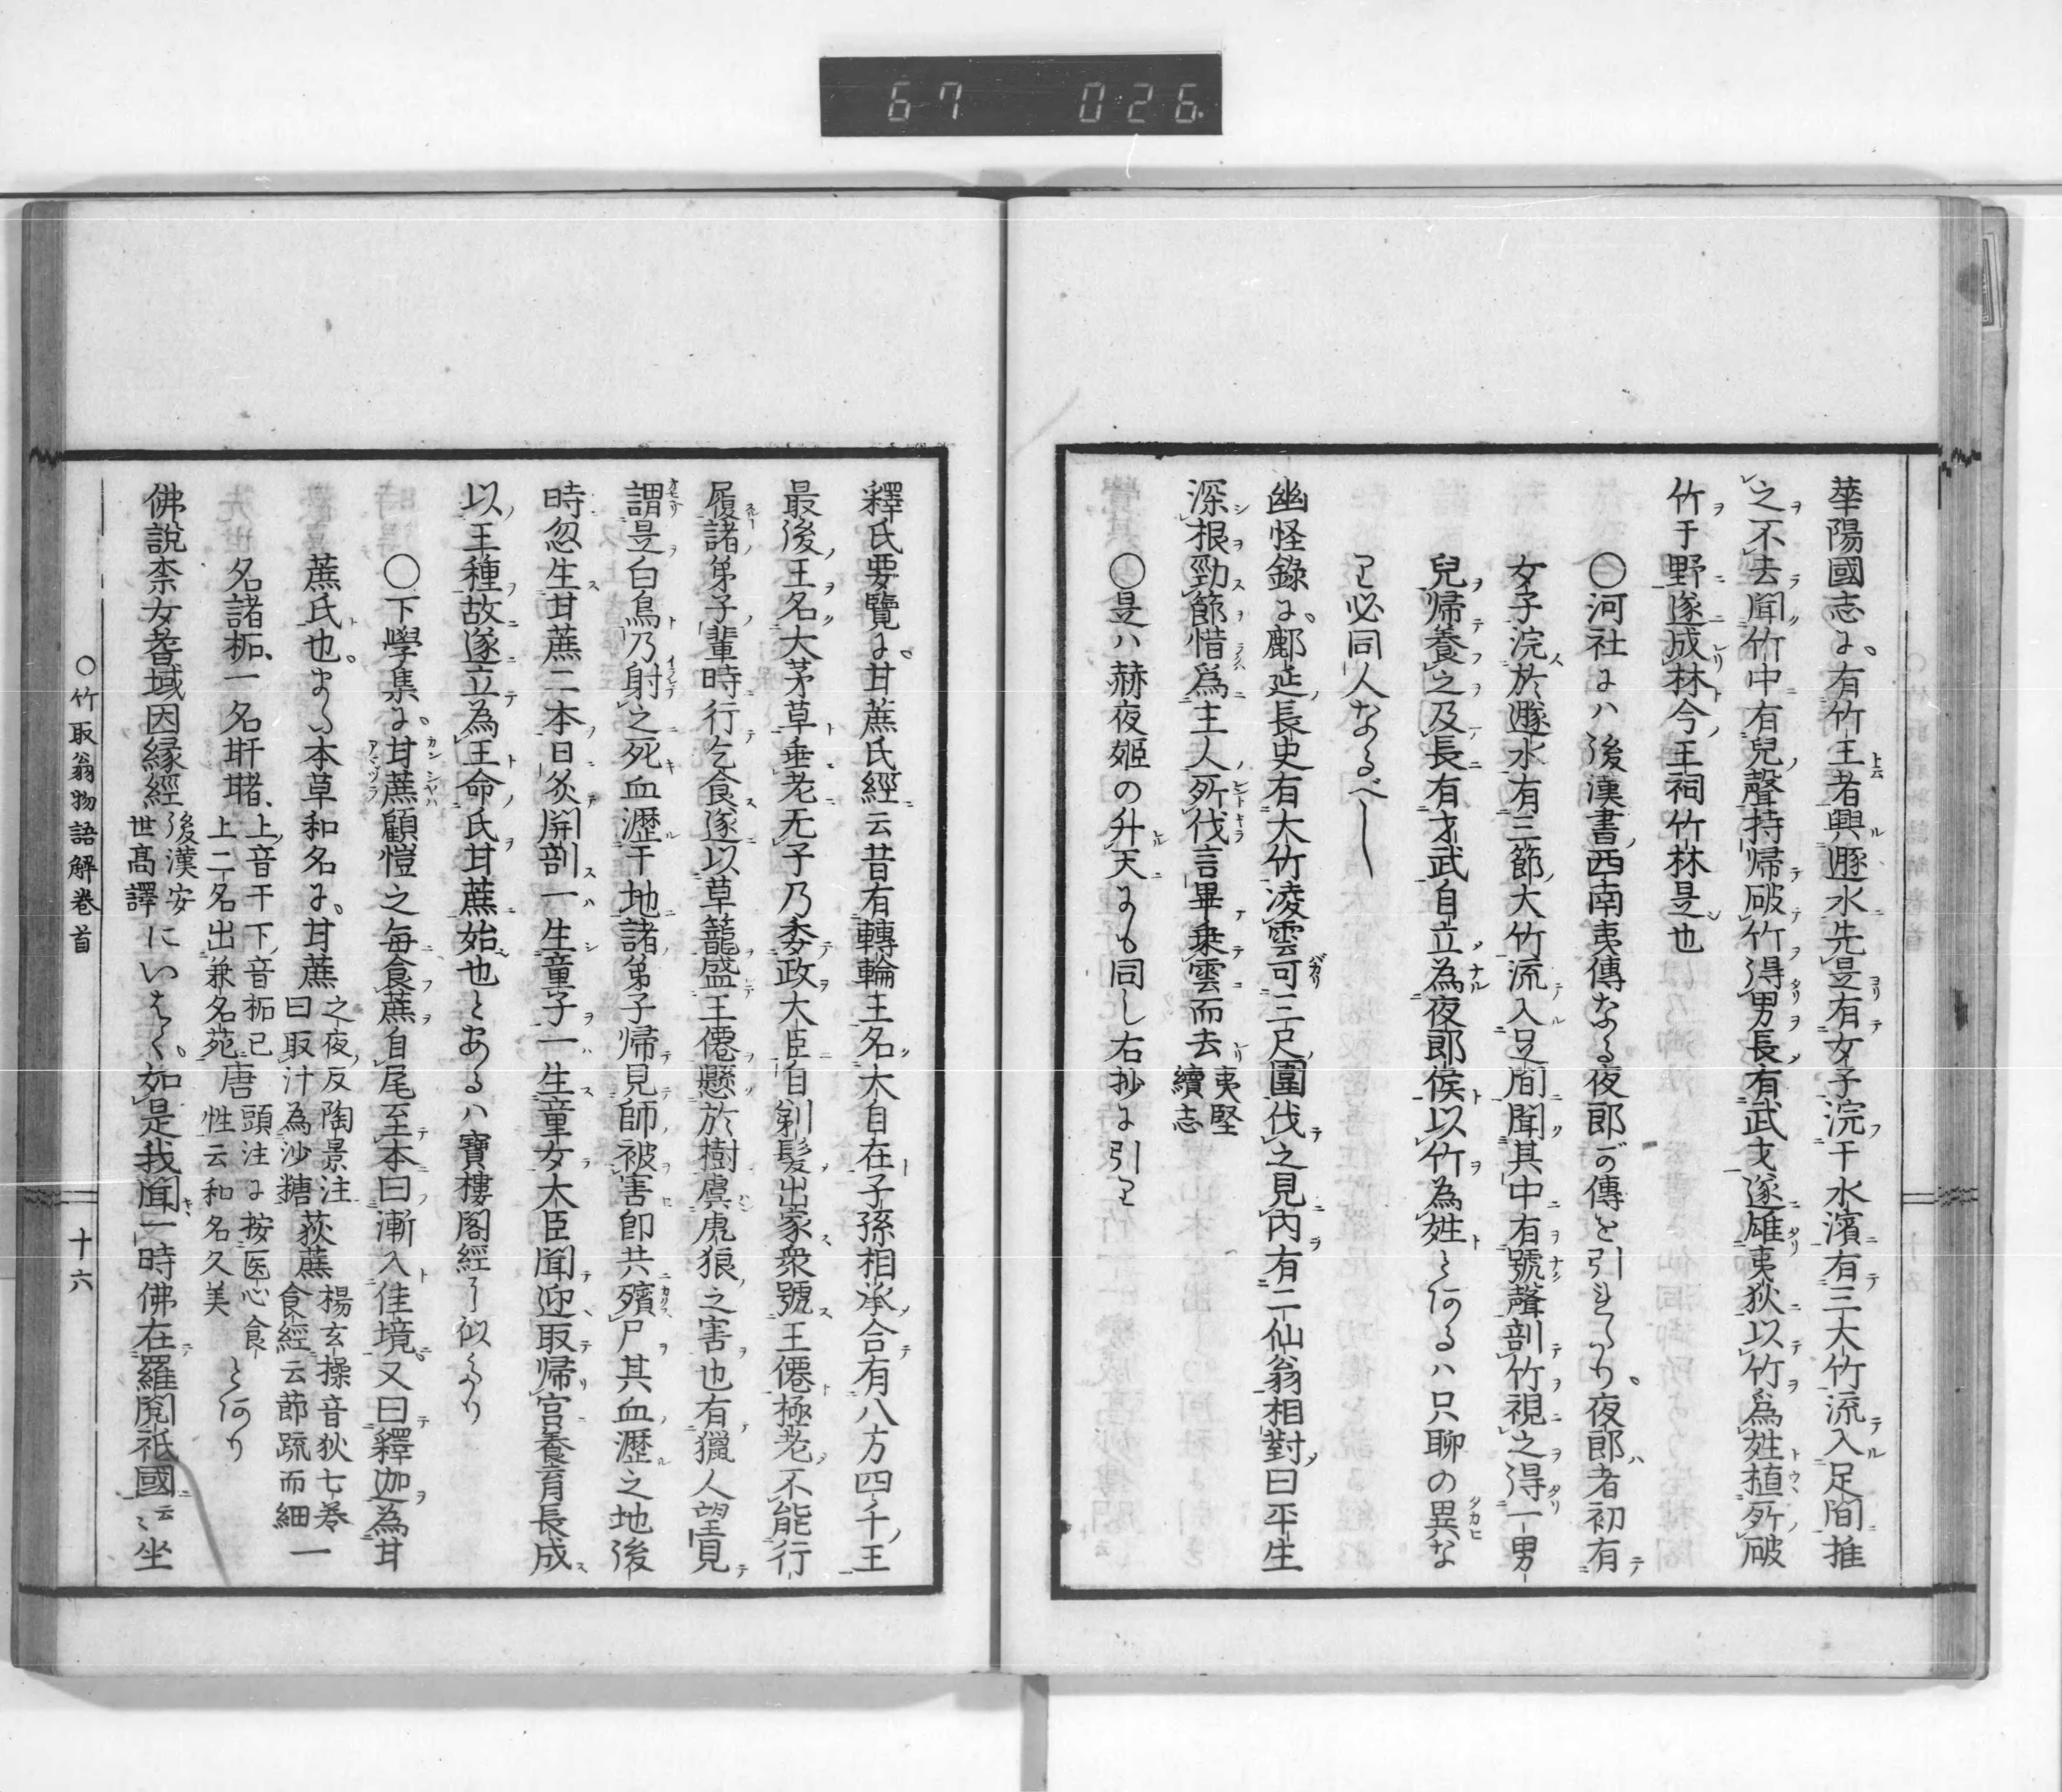 67 026
華陽國志に。有竹王者興遯水先是有女子浣于水濱有三大竹流入足間推
之不去聞竹中有兒聲持帰破竹得男長有武才遂雄夷狄以竹爲姓植所破
竹于野遂成林今王祠竹林是也
〇河社にハ後漢書西南夷傳なる夜郎が傳を引れたり。夜郎者初有
女子浣於遯水有三節大竹流入足間聞其中有號聲剖竹視之得一男
兒帰養之及長有才武自立為夜郎侯以竹為姓とあるハ只聊の異な
り必同人なるべし
幽怪錄に。鄜延長史有大竹凌雲可三尺圍伐之見内有二仙翁相對曰平生
深根勁節惜爲主人所伐言畢乗雲而去 夷堅續志
〇是ハ赫夜姫の升天にも同し右抄に引り
釋氏要覽に。甘蔗氏經云昔有轉輪王名大自在子孫相承合有八方四千王
最後王名大茅草垂老无子乃委政大臣自剃髮出家衆號王僊極老不能行
履諸弟子輩時行乞食遂以草籠盛王僊懸於樹虞虎狼之害也有獵人望見
謂是白鳥乃射之死血瀝于地諸弟子帰見師被害即共殯尸其血瀝之地後
時忽生甘蔗二本日炙開剖一生童子一生童女大臣聞迎取帰宮養育長成
以王種故遂立為王命氏甘蔗始也とあるハ寶樓閣經に似たり
〇下學集に。甘蔗顧愷之每食蔗自尾至本曰漸入佳境。又曰釋迦為甘
蔗氏也。また本草和名に。甘蔗 之夜反陶景注曰取汁為沙糖 荻蔗 楊玄操音狄七卷食經云節疏而細一
名諸柘、一名䍐䐗、上音干下音柘已上二名出兼名苑 唐 頭注に按医心食性云和名久美 とあり
佛說柰女耆域因緣經 後漢安世高譯 にいはく。如是我聞一時佛在羅閱祇國云〻坐
〇竹取翁物語解卷首
十六